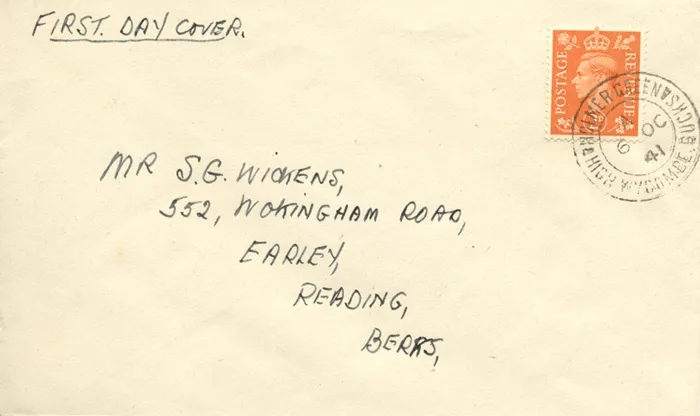 FIRST DAY COVER.
POSTAGE REVENUE
HAZLEMER GREEN BUCKS
6 OC
41
HIGH WYCOMBE
MR S.G. WICKENS,
552, WOKINGHAM ROAD,
EARLEY,
READING,
BERKS,